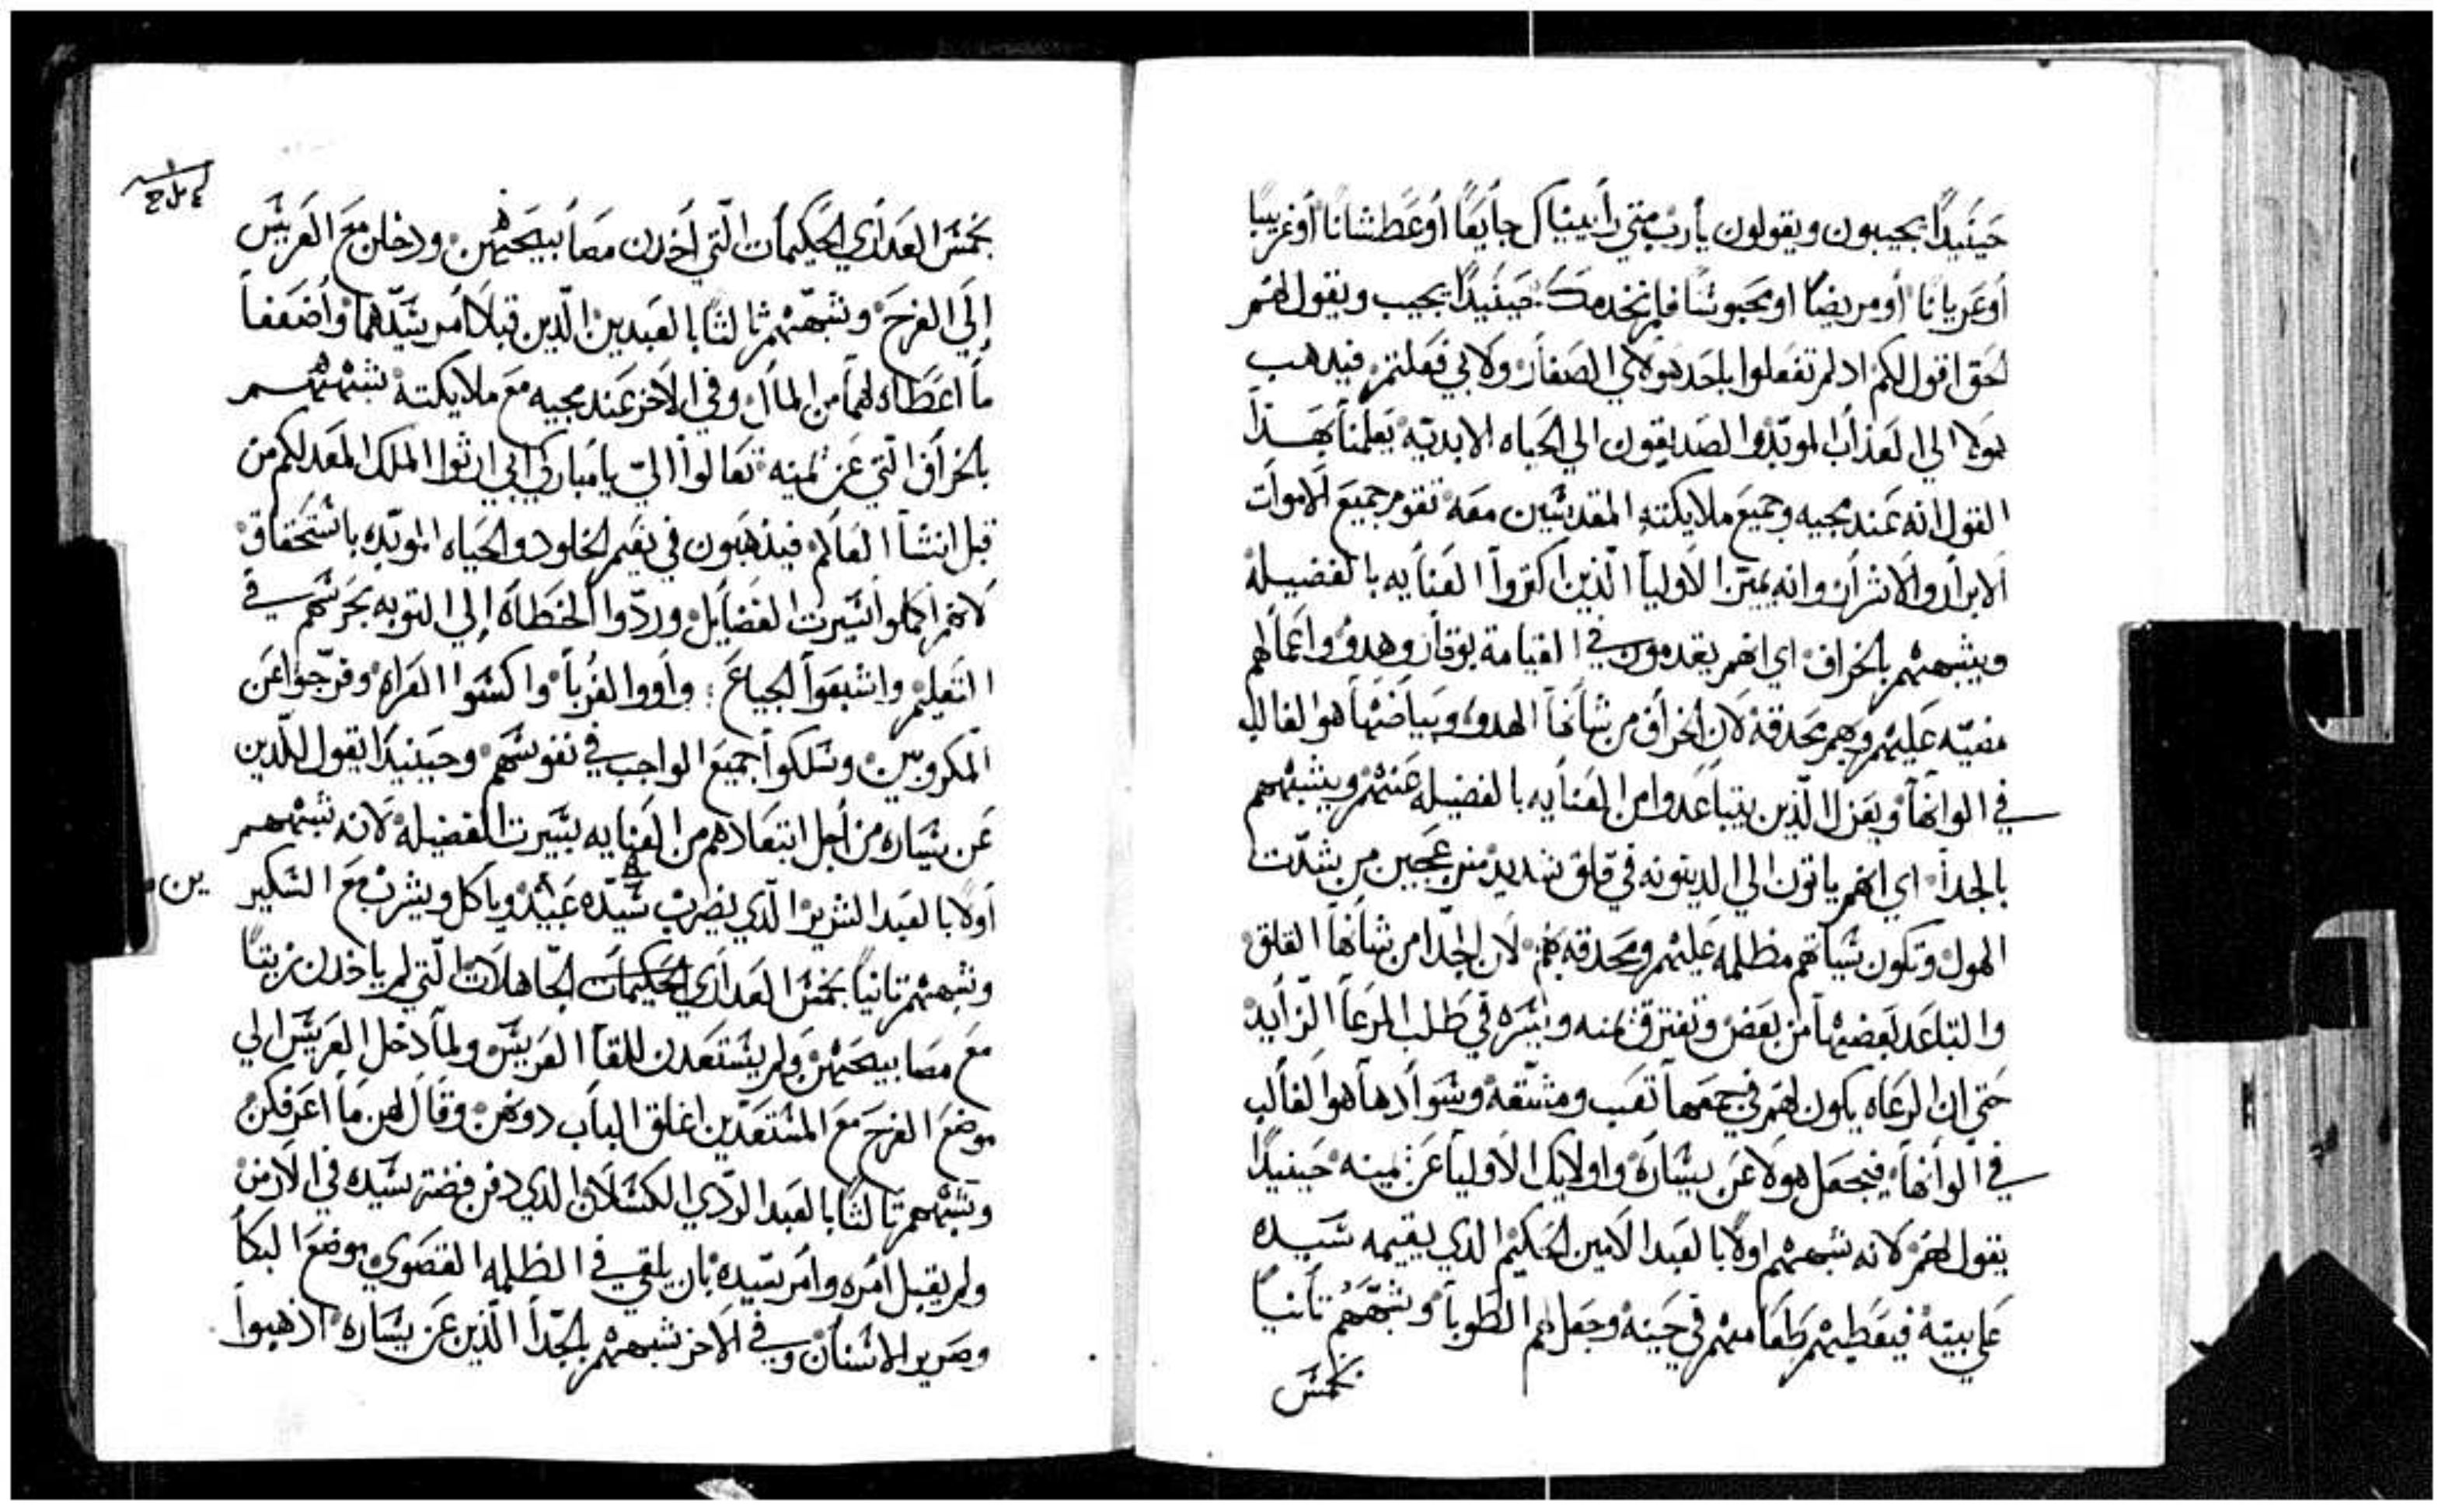 حينيدًا يجيبون ويقولون يأرب متي رأيناك جأيعًا أوعطشانًا أوغريبًا
أوعريانًا أومريضًا اومحبوسًا فلم نخدمك حينيدًا يجيب ويقول لهم
الحق اقول لكم اد لم تفعلوا باحد هولاي الصغار ولابي فعلتم فيدهب
هولا الي العذاب الموبد والصديقون الي الحياه الابديه يعلمنا بهذا
القول انه عند مجيه وجميع ملايكته المقدسين معه تقوم جميع الاموات
الابرار والاشرار وانه يميز الاوليا الذين اكتروا العنايه بالفضيله
ويشبههم بالخراف اي انهم يقدمون في القيامة بوقار وهدو واعمالهم
مضيه عليهم وهم محدقه لان الخراف من شانها الهدو وبياضها هو الغالب
في الوانها ويعزل الذين يتباعدوا من العنايه بالفضيله عنهم ويشبههم
بالجدا اي انهم ياتون الي الدينونه في قلق شديد منزعجين من شدت
الهول وتكون سياتهم مظلمه عليهم ومحدقه بهم لان الجدا من شانها القلق
والتباعد بعضها من بعض وتفترق يمنه ويسره في طلب المرعا الزايد
حتي ان الرعاه يكون لهم في جمعها تعب ومشقه وسوادها هو الغالب
في الوانها فيجعل هولا عن يساره واولايك الاوليا عن يمينه حينيدًا
يقول لهم لانه شبههم اولا بالعبد الامين الحكيم الدي يقيمه سيده
علي بيته فيعطيهم طعامهم في حينه وجعل لهم الطوبا وشبههم تانيًا
بخمس
بخمس العداري الحكيمات التي أخدن مصابيحهن ودخلن مع العريس
إلي الفرح وشبههم ثالثا بالعبدين الذين قبلا امر سيدهما وأضعفا
ما اعطاه لهما من المال وفي الاخر عند مجيه مع ملايكته شبههم
بالخراف التي عن يمينه تعالوا الي يا مباركي ابي ارثوا الملك المعد لكم من
قبل انشا العالم فيذهبون في نعيم الخلود والحياه الموبده باستحقاق
لانهم أكملوا سيرت الفضايل وردوا الخطاه إلي التوبه بحرسهم في
التعليم واشبعوا الجياع وأووا الغربا واكسوا العراه وفرجوا عن
المكروبين وسلكوا جميع الواجب في نفوسهم وحينيدًا يقول للدين
عن يساره من أجل ابتعادهم من العنايه بسيرت الفضيله لانه شبههم
أولا بالعبد الشرير الدي يضرب سيده عبيد وياكل ويشرب مع السكير
ين
وشبههم تانيًا بخمس العداري الحكيمات الجاهلات التي لم ياخدن زيتًا
مع مصابيحهن ولم يستعدن للقا العريس ولما دخل العريس الي
موضع الفرح مع المستعدين اغلق الباب دونهن وقال لهن ما اعرفكن
وشبههم تالتا بالعبد الردي الكسلان الدي دفن فضة سيده في الارض
ولم يقبل امره وامر سيده بان يلقي في الظلمه القصوي موضع البكا
وصرير الاسنان وفي الاخر شبههم بالجدا الذين عن يساره اذهبوا